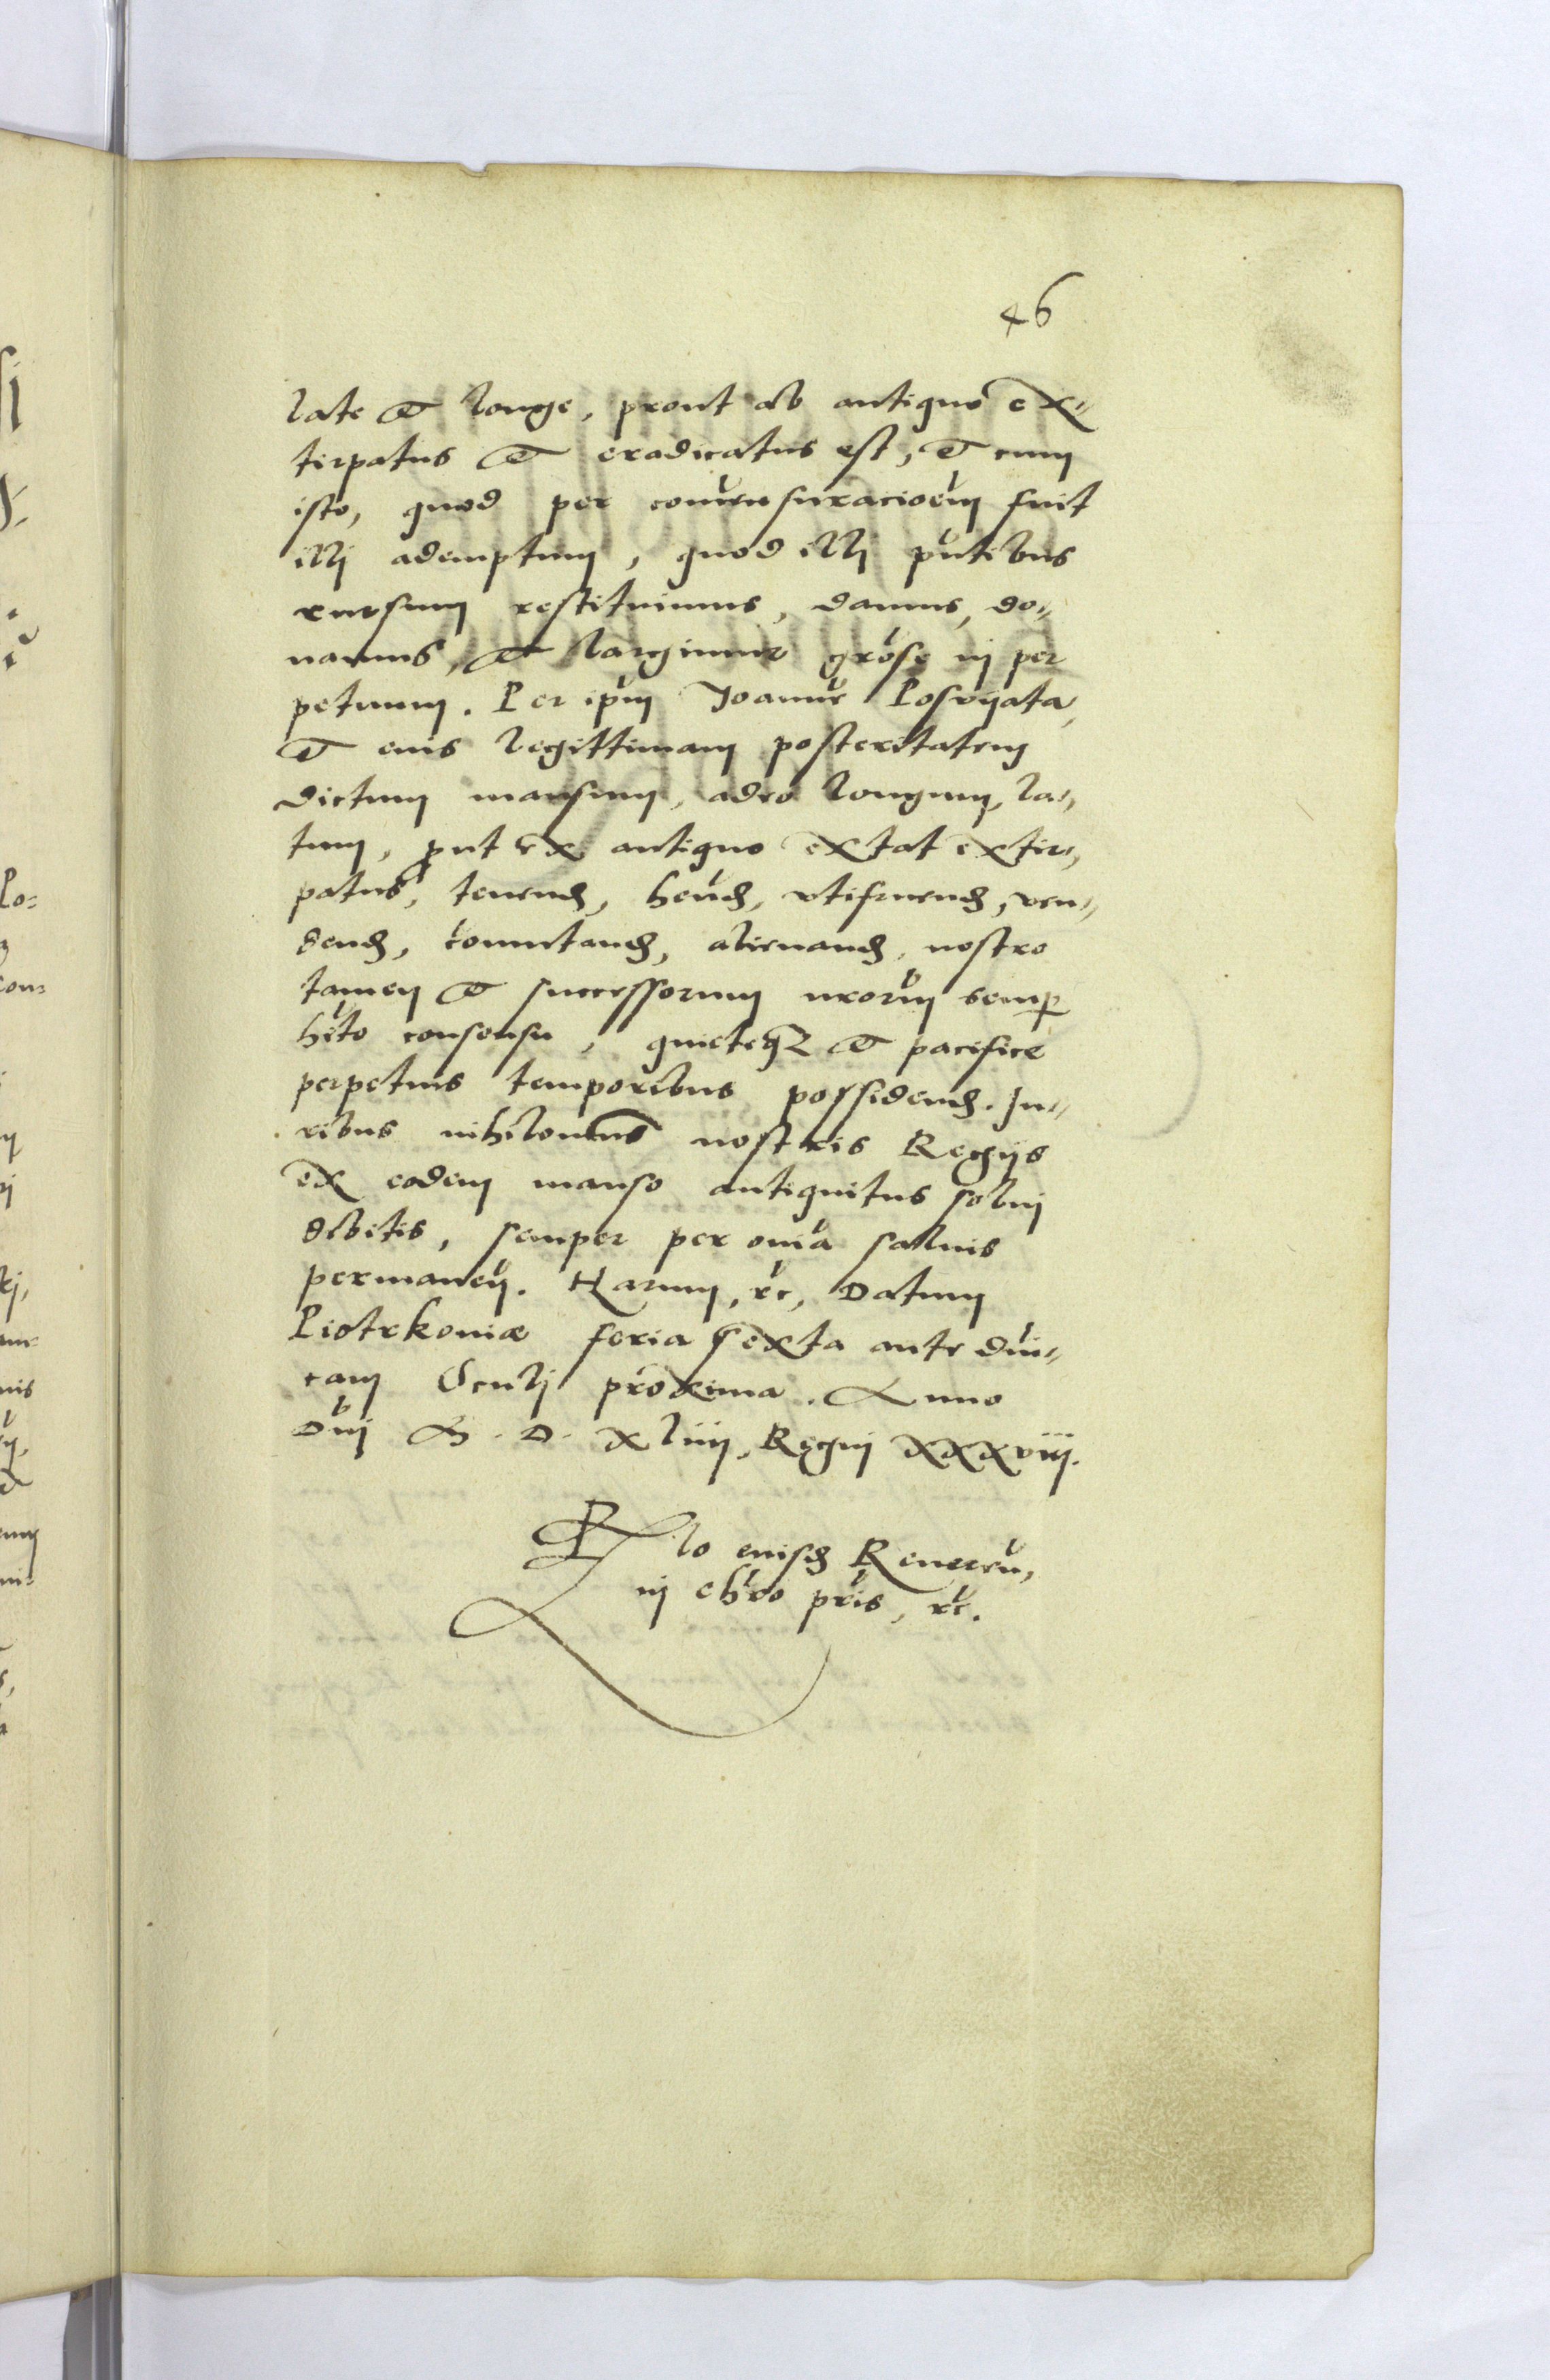 46
late et longe, prout ab antiquo ex„
tirpatus et eradicatus est, et cum
isto, quod per comensuracioem fuit
illi ademptum, quod illi pntibus
rursum restituimus, damus, do„
namus, et largimur grose in per
petuum. Per ipm Joanne Poswyata,
et eius legittimam posteritatem
dictum mansum, adeo longum, la„
tum, put ex antiquo extat extir„
patus, tenend, hend, vtifruend, ven„
dend, comutand, alienand, nostro
tamen et successorum nrorum semp
hito consensu, quieteqz et pacifice
perpetuis temporibus possidend. Ju„
ribus nihilominus nostris Regijs
ex eodem manso antiquitus solui
debitis, semper per omia saluis
permanen. Harum, rc, Datum
Piotrkoniæ feria sexta ante dni„
cam Oculi proxima. Anno
Dni M. D. xliiij, Regni xxxviij.
Rlo eiusd Reueren,
in chro pris, rc.